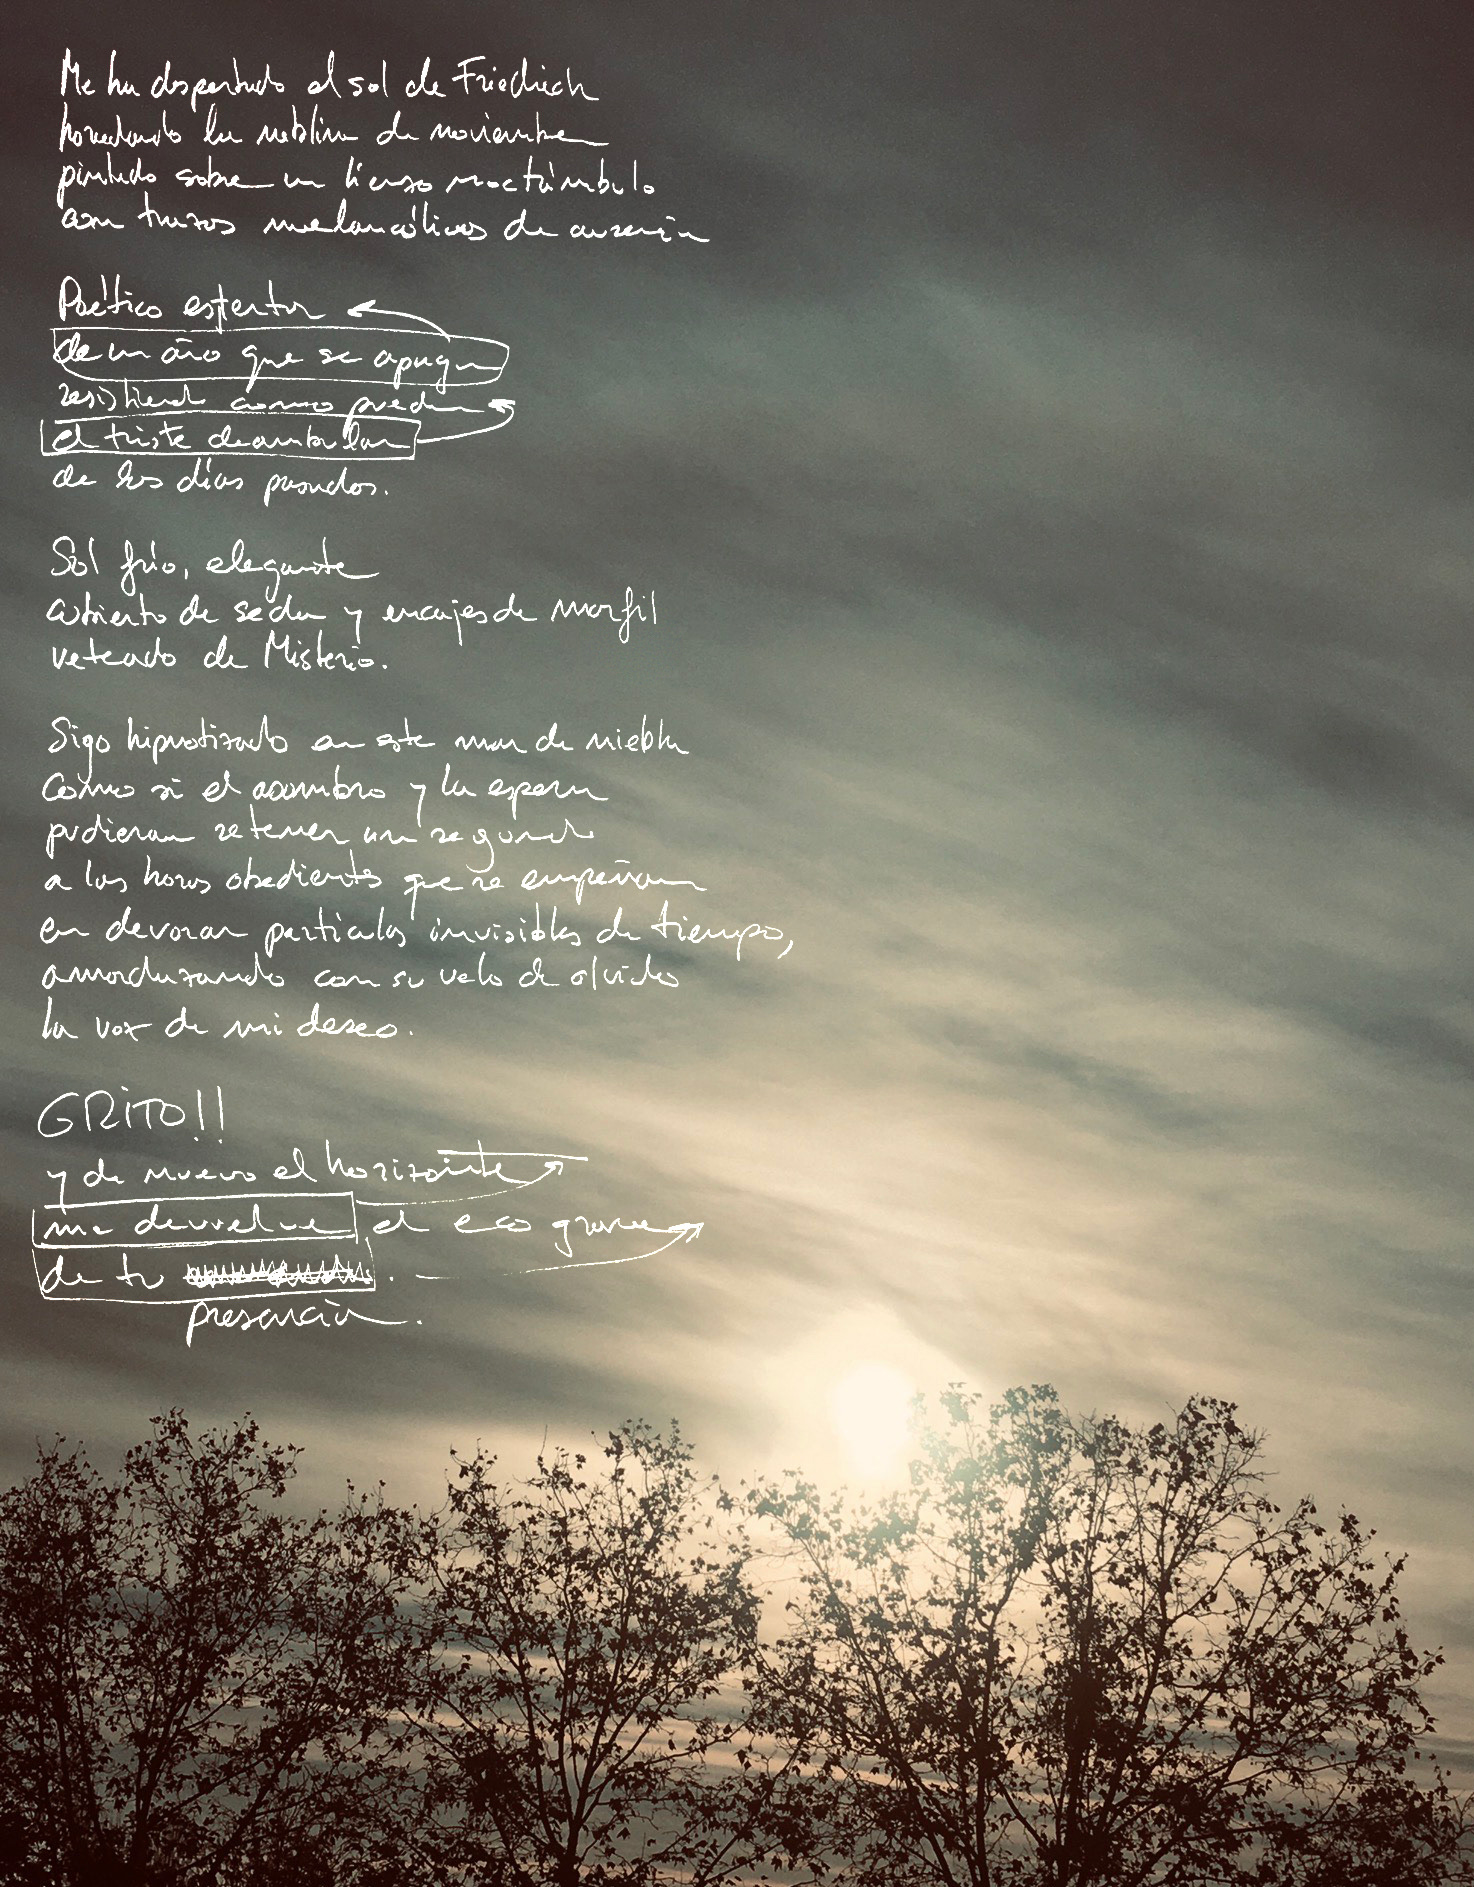 Me ha despertado el sol de Friedrich
horadando la neblina de noviembre
pintado sobre un lienzo noctámbulo
con trazos melancólicos de ausencia
Poético estertor
de un año que se apaga
resistiendo como puede
el triste deambular
de los días pasados.
Sol frío, elegante
cubierto de seda y encajes de marfil
veteado de Misterio.
Sigo hipnotizado en este mar de niebla
como si el asombro y la espera
pudieran retener un segundo
a las horas obedientes que se empeñan
en devorar partículas invisibles de tiempo,
amordazando con su velo de olvido
la voz de mi deseo.
GRITO!!
y de nuevo el horizonte
me devuelve el eco grave
de tu .
presencia.